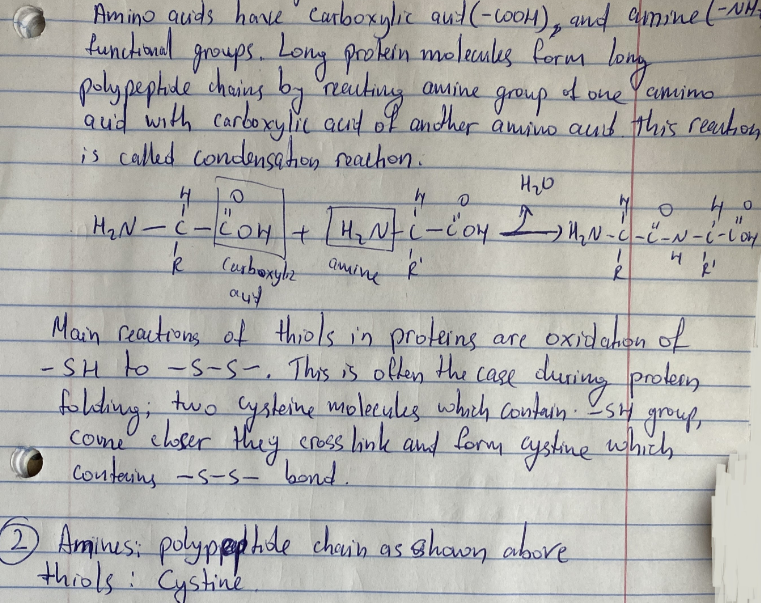 Amino acids have carboxylic acid (-COOH), and amine (-NH
functional groups. Long protein molecules form long
polypeptide chains by reacting amine group of one amimo
acid with carboxylic acid of another amino acid. this reaction
is called condensation reaction.
H O H O H2O H O H O
H2N - C - C OH + H2N - C - C OH → H2N - C - C - N - C - C OH
R carboxylic amine R' R H R'
acid
Main reactions of thiols in proteins are oxidation of
-SH to -S-S-. This is often the case during protein
folding; two cysteine molecules which contain -SH group,
come closer they cross link and form cystine which
contains -S-S- bond.
2 Amines: polypeptide chain as shown above
thiols : Cystine.